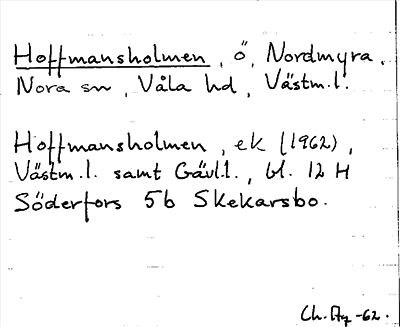 Hoffmansholmen, ö, Nordmyra,
Nora sn, Våla hd, Västm.l.
Hoffmansholmen, ek (1962),
Västm.l. samt Gävl.l., bl. 12 H
Söderfors 5b Skekarsbo.
Ch. -62.